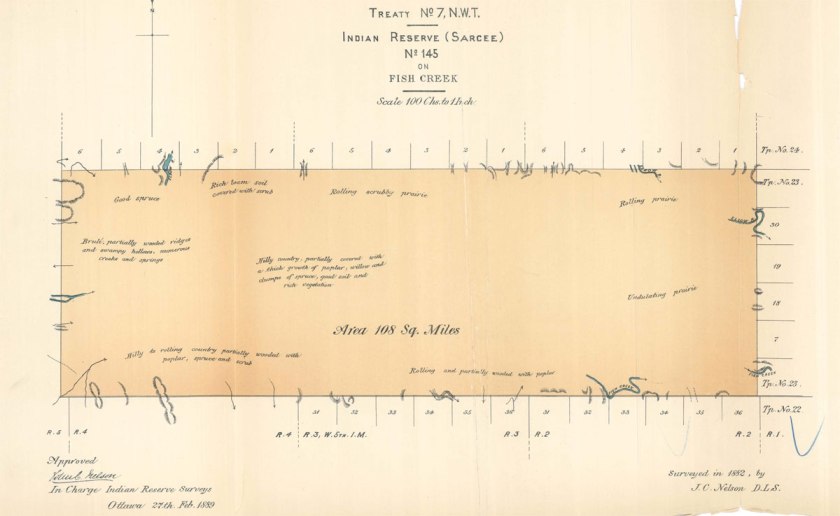 TREATY Nº 7, N.W.T.
INDIAN RESERVE (SARCEE)
Nº 145
ON
FISH CREEK
Scale 100 Chs. to 1 In.ch
6 5 4 3 2 1 6 5 4 3 2 1 6 5 4 3 2 1 Tp. No. 24.
Tp. No. 23.
Good spruce
Rich loam soil
covered with scrub
Rolling scrubby prairie
Rolling prairie
30
Brulé, partially wooded ridges
and swampy hollows, numerous
creeks and springs
Hilly country, partially covered with
a thick growth of poplar, willow and
clumps of spruce, good soil and
rich vegetation
19
Undulating prairie
18
Area 108 Sq. Miles
7
Hilly to rolling country partially wooded with
poplar, spruce and scrub
Rolling and partially wooded with poplar
FISH CREEK
FISH CREEK
Tp. No. 23.
31 32 33 34 35 36 31 32 33 34 35 36 Tp. No. 22
R. 5 R. 4 R. 4 R. 3, W. 5TH I. M. R. 3 R. 2 R. 2 R. 1.
Approved
John C. Nelson
In Charge Indian Reserve Surveys
Ottawa 27th Feb. 1889
Surveyed in 1882, by
J. C. Nelson D.L.S.